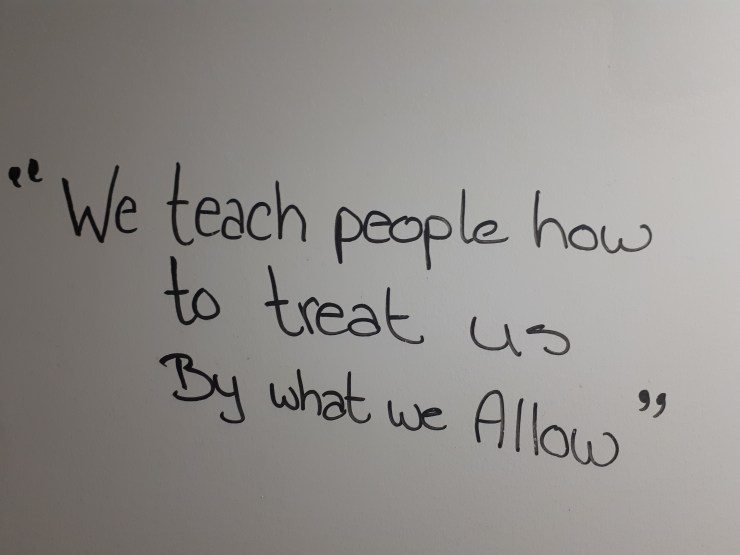 “We teach people how
to treat us
By what we Allow”